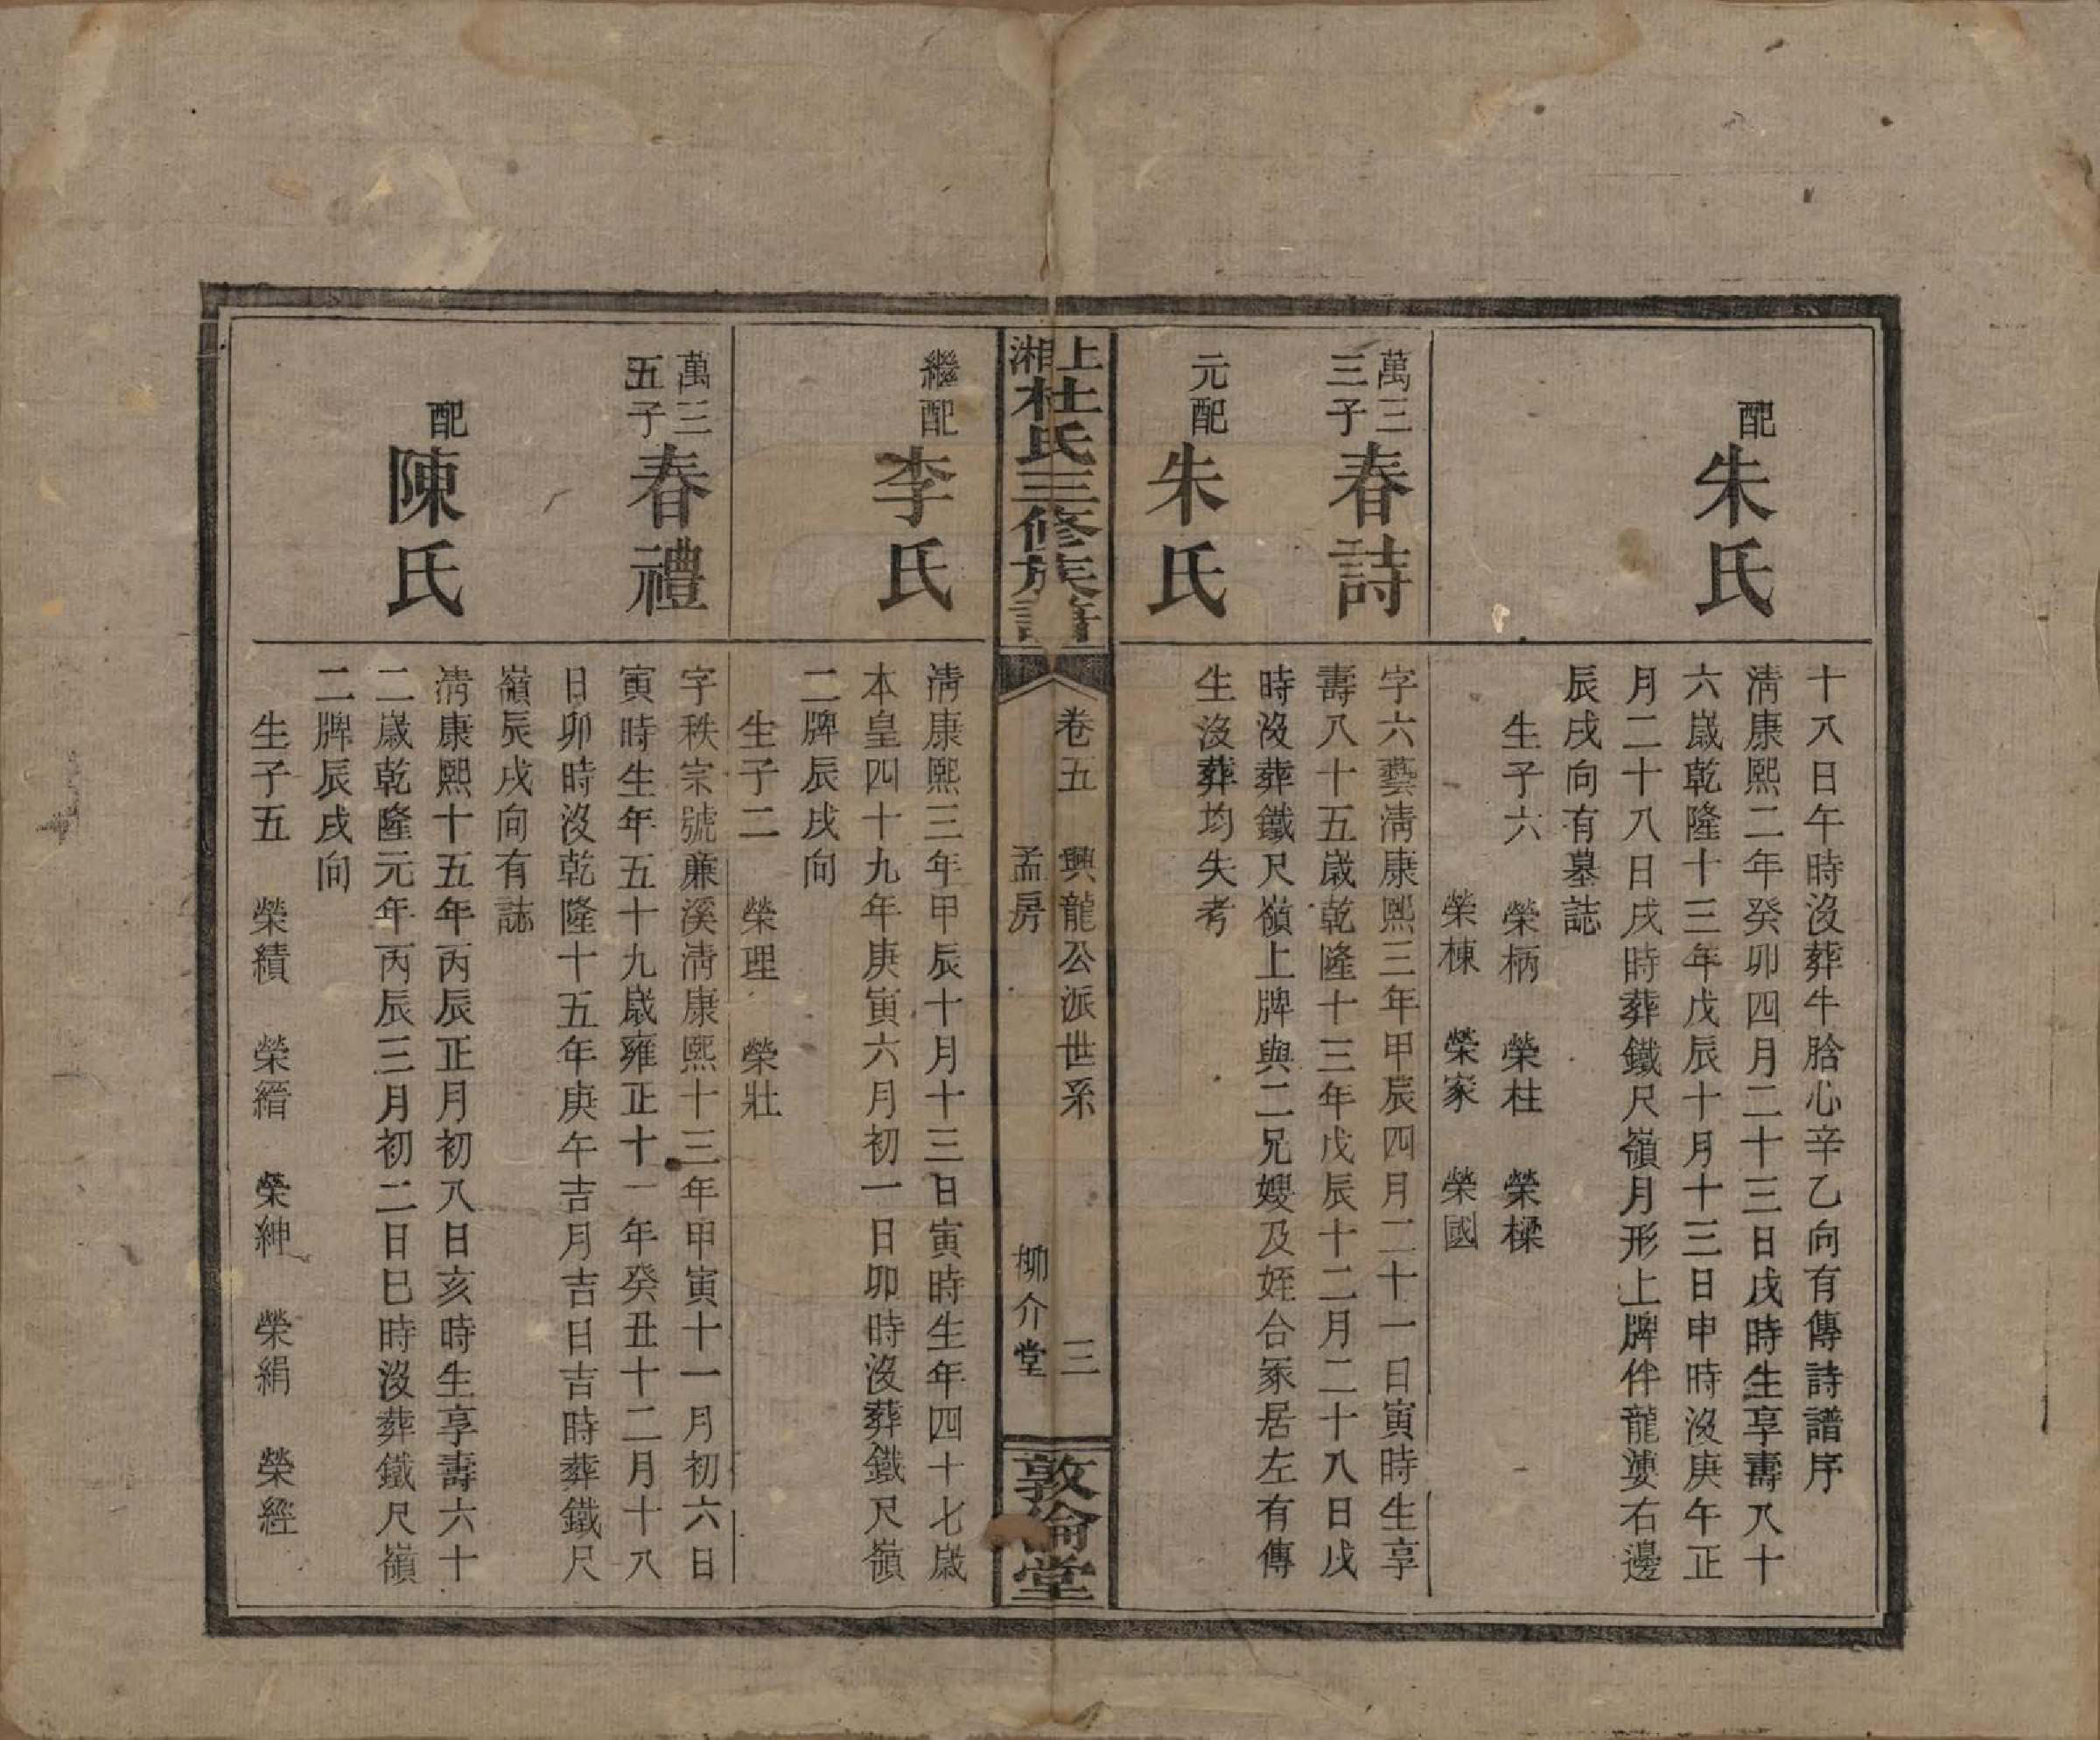 十八日午時沒葬牛胎心辛乙向有傳詩譜序
配
朱氏
清康熙二年癸卯四月二十三日戌時生享壽八十
六歲乾隆十三年戊辰十月十三日申時沒庚午正
月二十八日戌時葬鐵尺嶺月形上牌伴龍婆右邊
辰戌向有墓誌
生子六 榮柄 榮柱 榮樑
榮棟 榮家 榮國
萬三
三子
春詩
字六藝清康熙三年甲辰四月二十一日寅時生享
壽八十五歲乾隆十三年戊辰十二月二十八日戌
時沒葬鐵尺嶺上牌與二兄嫂及姪合冢居左有傳
元配
朱氏
生沒葬均失考
上湘杜氏三修族譜
卷五 興龍公派世系 三
孟房 柳介堂
敦倫堂
繼配
李氏
清康熙三年甲辰十月十三日寅時生年四十七歲
本皇四十九年庚寅六月初一日卯時沒葬鐵尺嶺
二牌辰戌向
生子二 榮理 榮壯
萬三
五子
春禮
字秩宗號廉溪清康熙十三年甲寅十一月初六日
寅時生年五十九歲雍正十一年癸丑十二月十八
日卯時沒乾隆十五年庚午吉月吉日吉時葬鐵尺
嶺辰戌向有誌
配
陳氏
清康熙十五年丙辰正月初八日亥時生享壽六十
二歲乾隆元年丙辰三月初二日巳時沒葬鐵尺嶺
二牌辰戌向
生子五 榮績 榮縉 榮紳 榮絹 榮經